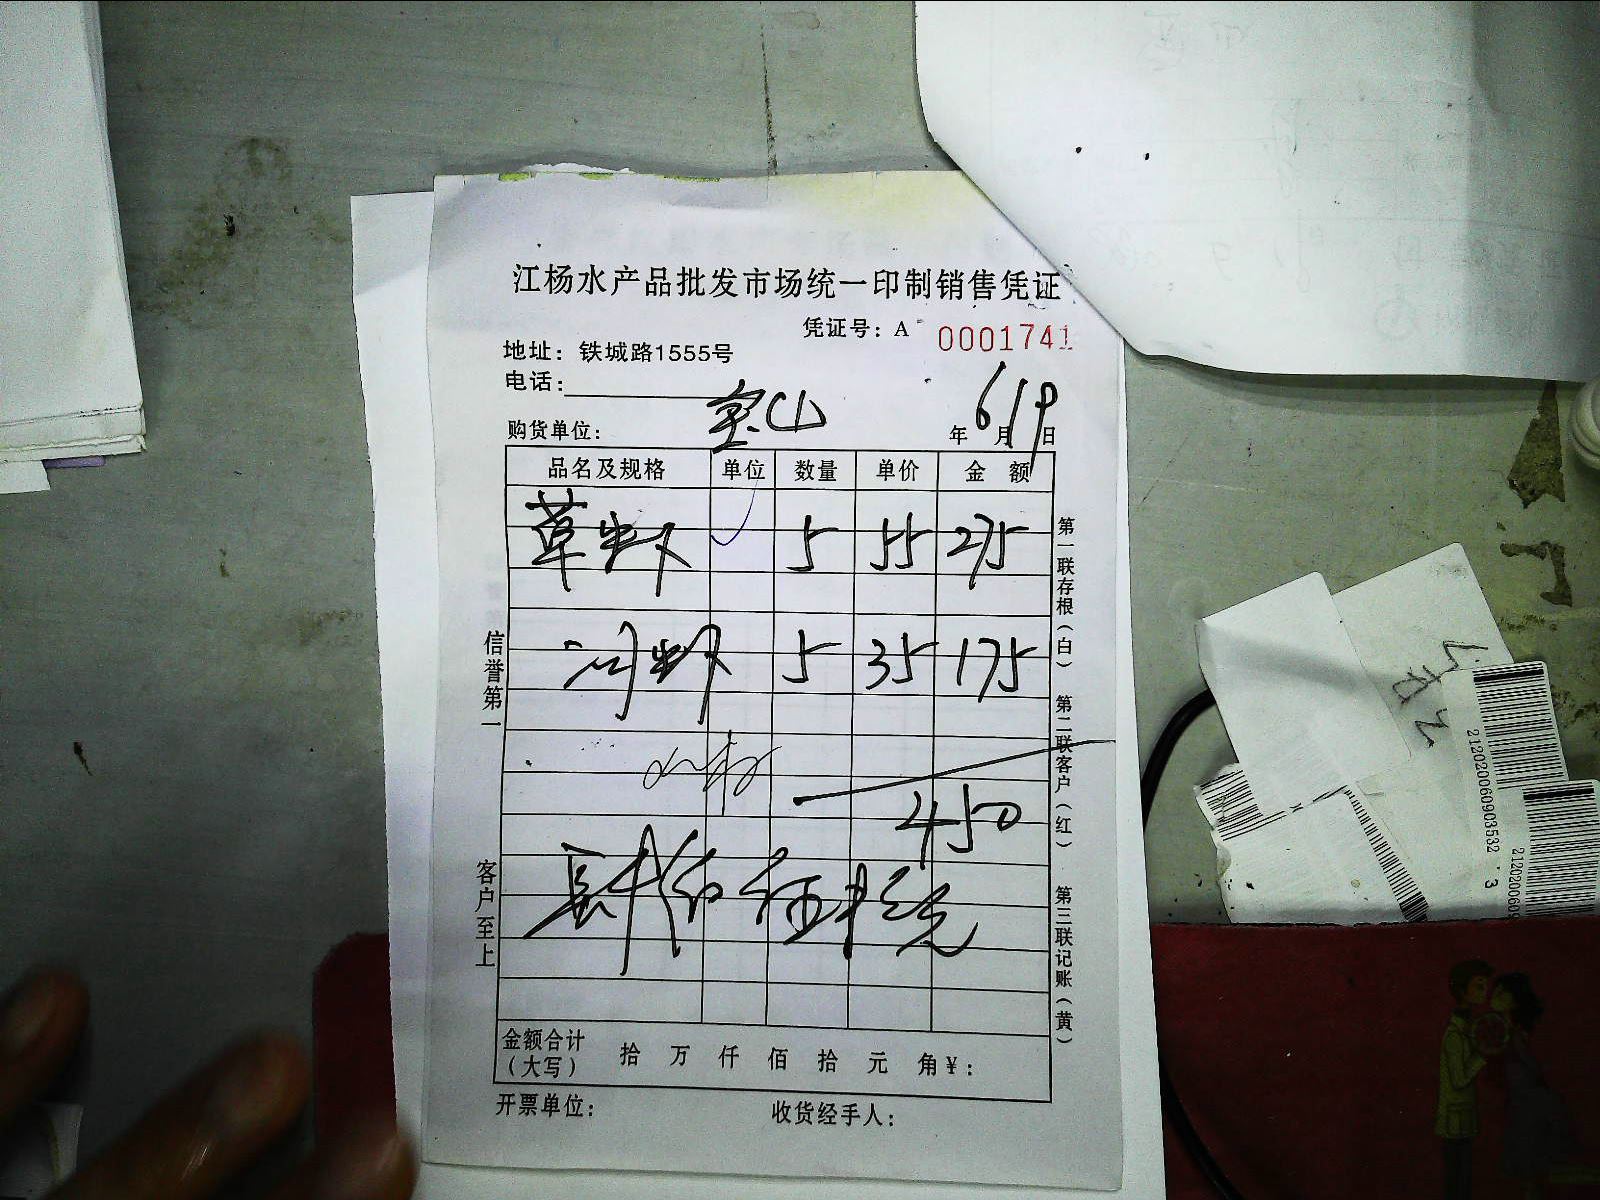 江杨水产品批发市场统一印制销售凭证
凭证号：A 0001741
地址：铁城路1555号
电话：
购货单位： 宝山 年 6月19日
品名及规格 单位 数量 单价 金 额
草虾 5 55 275
河虾 5 35 175
450
肆佰伍拾元
金额合计（大写） 拾 万 仟 佰 拾 元 角 ¥：
开票单位： 收货经手人：
信誉第一
客户至上
第一联存根（白）
第二联客户（红）
第三联记账（黄）
212020060903532 3